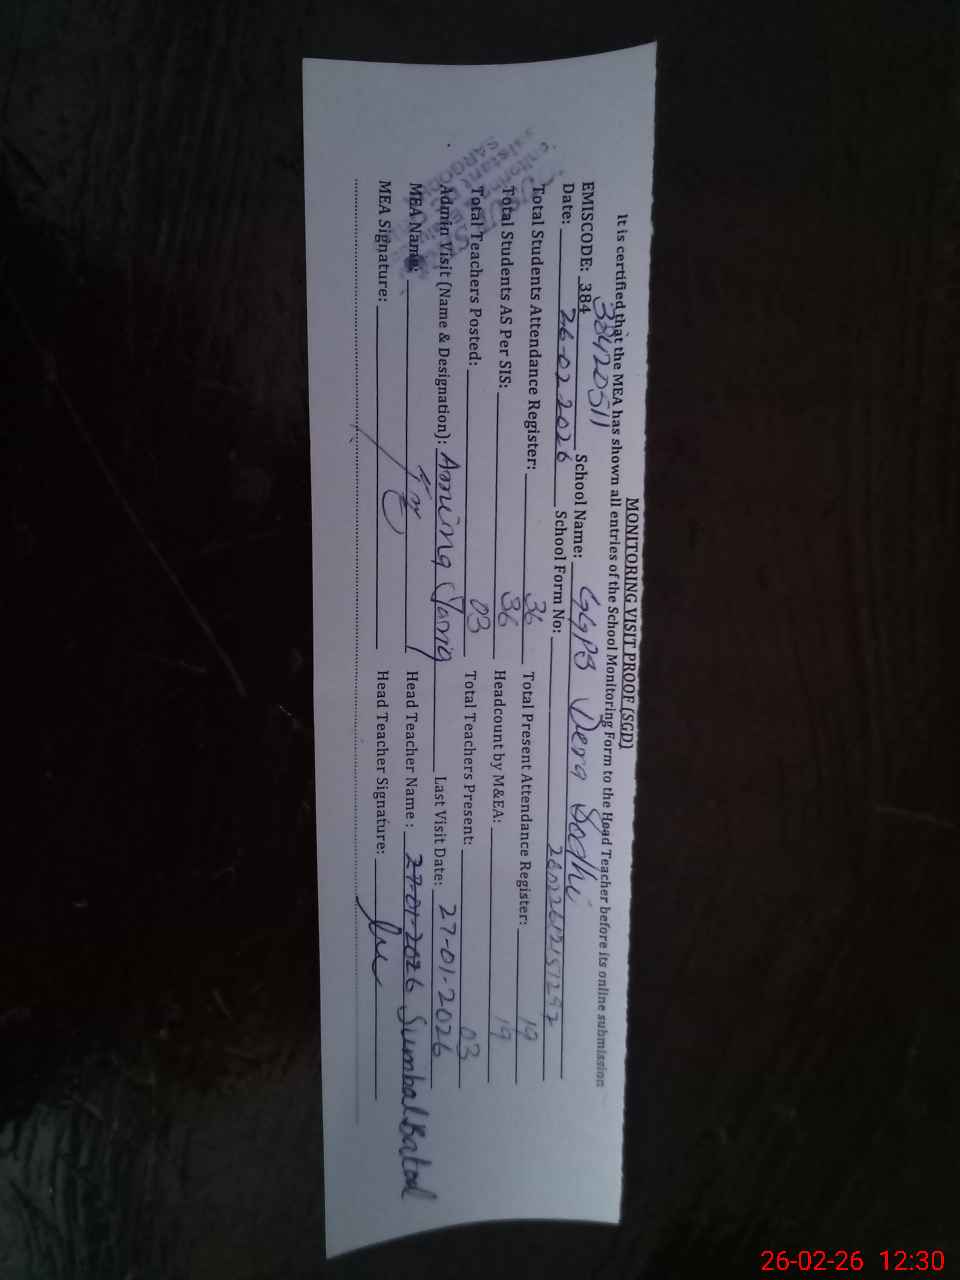 MONITORING VISIT PROOF (SGD)
It is certified that the MEA has shown all entries of the School Monitoring Form to the Head Teacher before its online submission
38420511
EMISCODE: 384 School Name: GGPS Dera Sodhi
Date: 26-02-2026 School Form No:
Total Students Attendance Register: 36 Total Present Attendance Register: 19
Total Students AS Per SIS: 36 Headcount by M&EA: 19
Total Teachers Posted: 03 Total Teachers Present: 03
Admin Visit (Name & Designation): Amina Last Visit Date: 27-01-2026
MEA Name: Head Teacher Name : 27-01-2026 Sumbal Batool
MEA Signature: Head Teacher Signature:
26-02-26 12:30